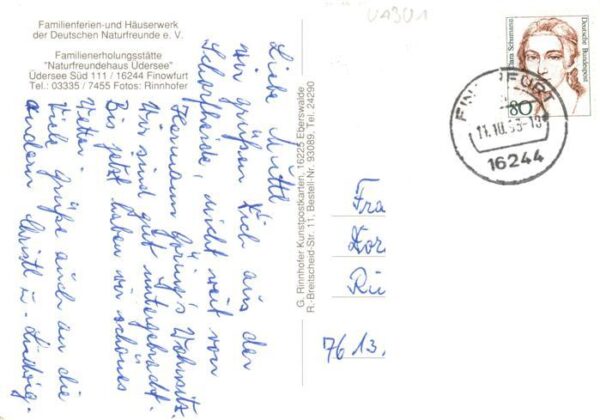 Familienferien-und Häuserwerk
der Deutschen Naturfreunde e. V.
Familienerholungsstätte
"Naturfreundehaus Üdersee"
Üdersee Süd 111 / 16244 Finowfurt
Tel.: 03335 / 7455 Fotos: Rinnhofer
Liebe Mutti
wir grüßen Dich aus der
Schorfheide, nicht weit von
Hermann Göring's Wohnsitz.
Wir sind gut untergebracht.
Bis jetzt haben wir schönes
Wetter.
Viele Grüße auch an die
andern Christl u.
G. Rinnhofer Kunstpostkarten, 16225 Eberswalde
R.-Breitscheid-Str. 11, Bestell-Nr. 93089, Tel. 24290
Clara Schumann
Deutsche Bundespost
80
FINOWFURT
11.10.
16244
Fra
Dor
Rü
7613.